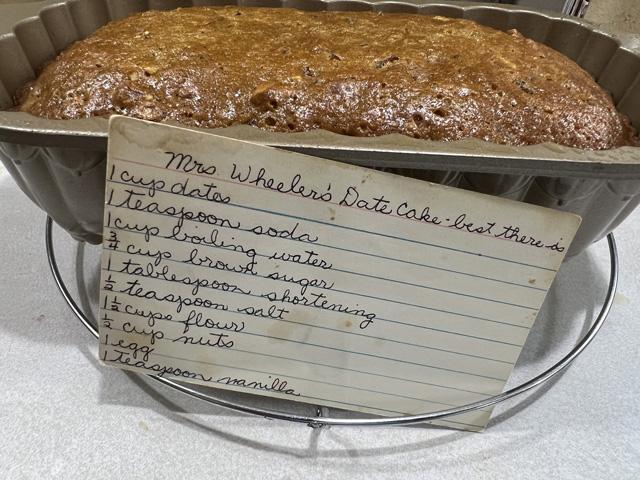 Mrs Wheeler's Date Cake - best there is
1 cup dates
1 teaspoon soda
1 cup boiling water
3/4 cup brown sugar
1 tablespoon shortening
1/2 teaspoon salt
1 1/2 cups flour
1/2 cup nuts
1 egg
1 teaspoon vanilla